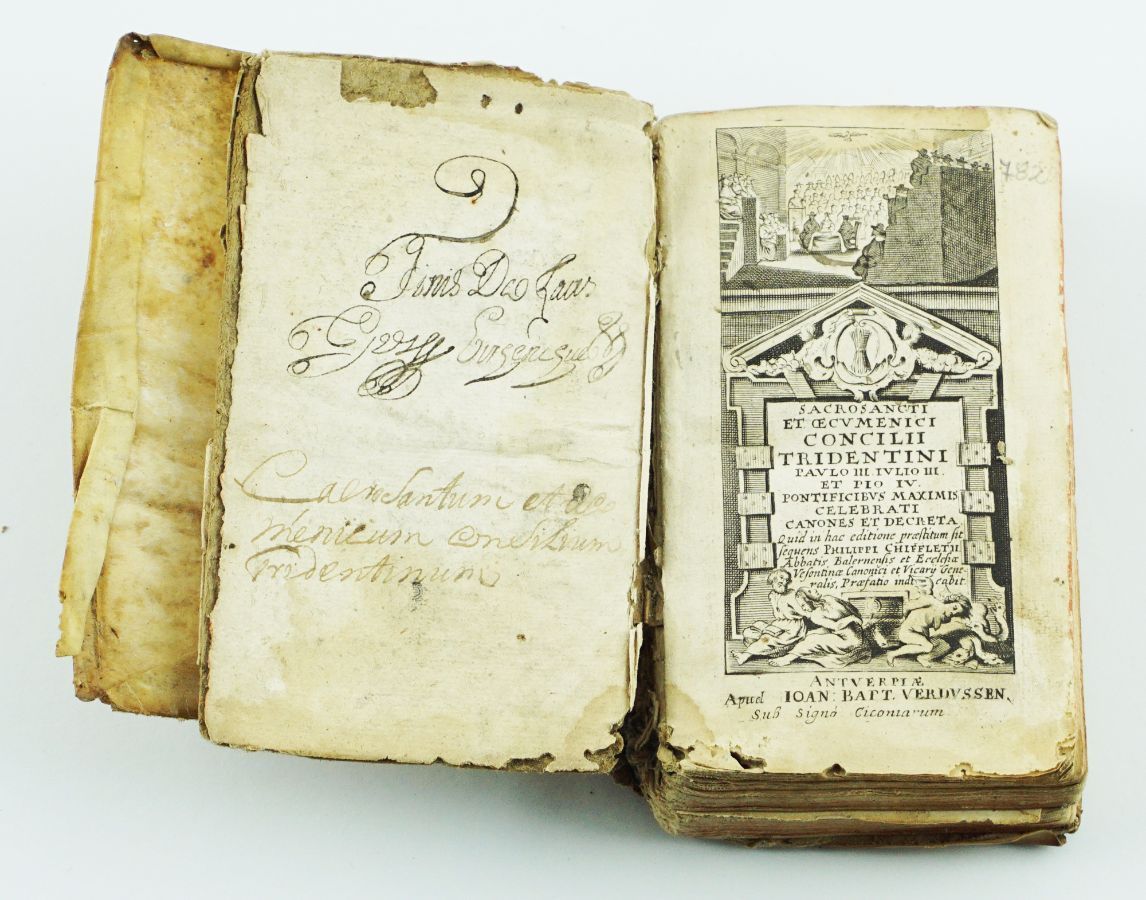 Finis Deo Laus
Caerosantum et œc
menicum concilium
Tridentinum
782
SACROSANCTI
ET ŒCVMENICI
CONCILII
TRIDENTINI
PAVLO III. IVLIO III.
ET PIO IV.
PONTIFICIBVS MAXIMIS
CELEBRATI
CANONES ET DECRETA
Quid in hac editione præstitum sit
sequens PHILIPPI CHIFFLETII
Abbatis, Balernensis et Ecclesiæ
Vesontinæ Canonici et Vicarij Gene-
ralis, Præfatio indicabit
ANTVERPIÆ
Apud IOAN: BAPT. VERDVSSEN,
Sub Signo Ciconiarum